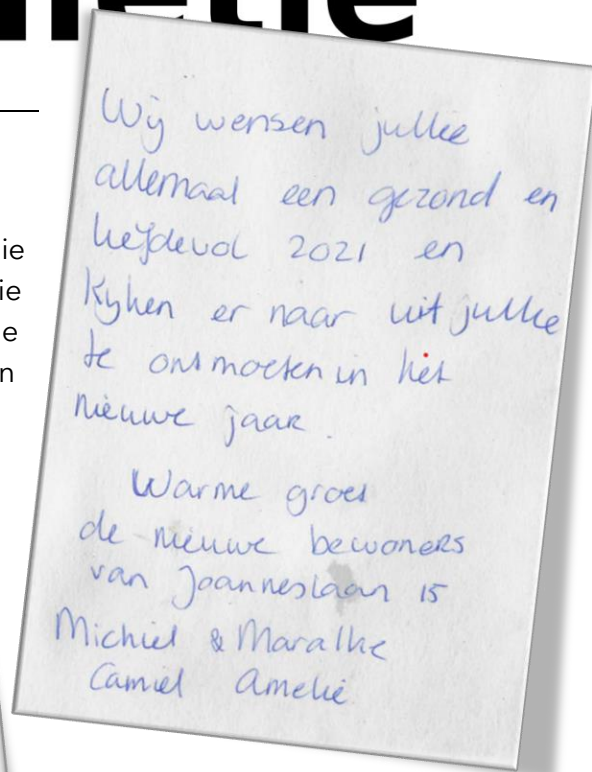 Wij wensen jullie
allemaal een gezond en
liefdevol 2021 en
kijken er naar uit jullie
te ontmoeten in het
nieuwe jaar.
Warme groet
de nieuwe bewoners
van Joanneslaan 15
Michiel & Maraike
Camiel Amelie
ie
ie
e
n